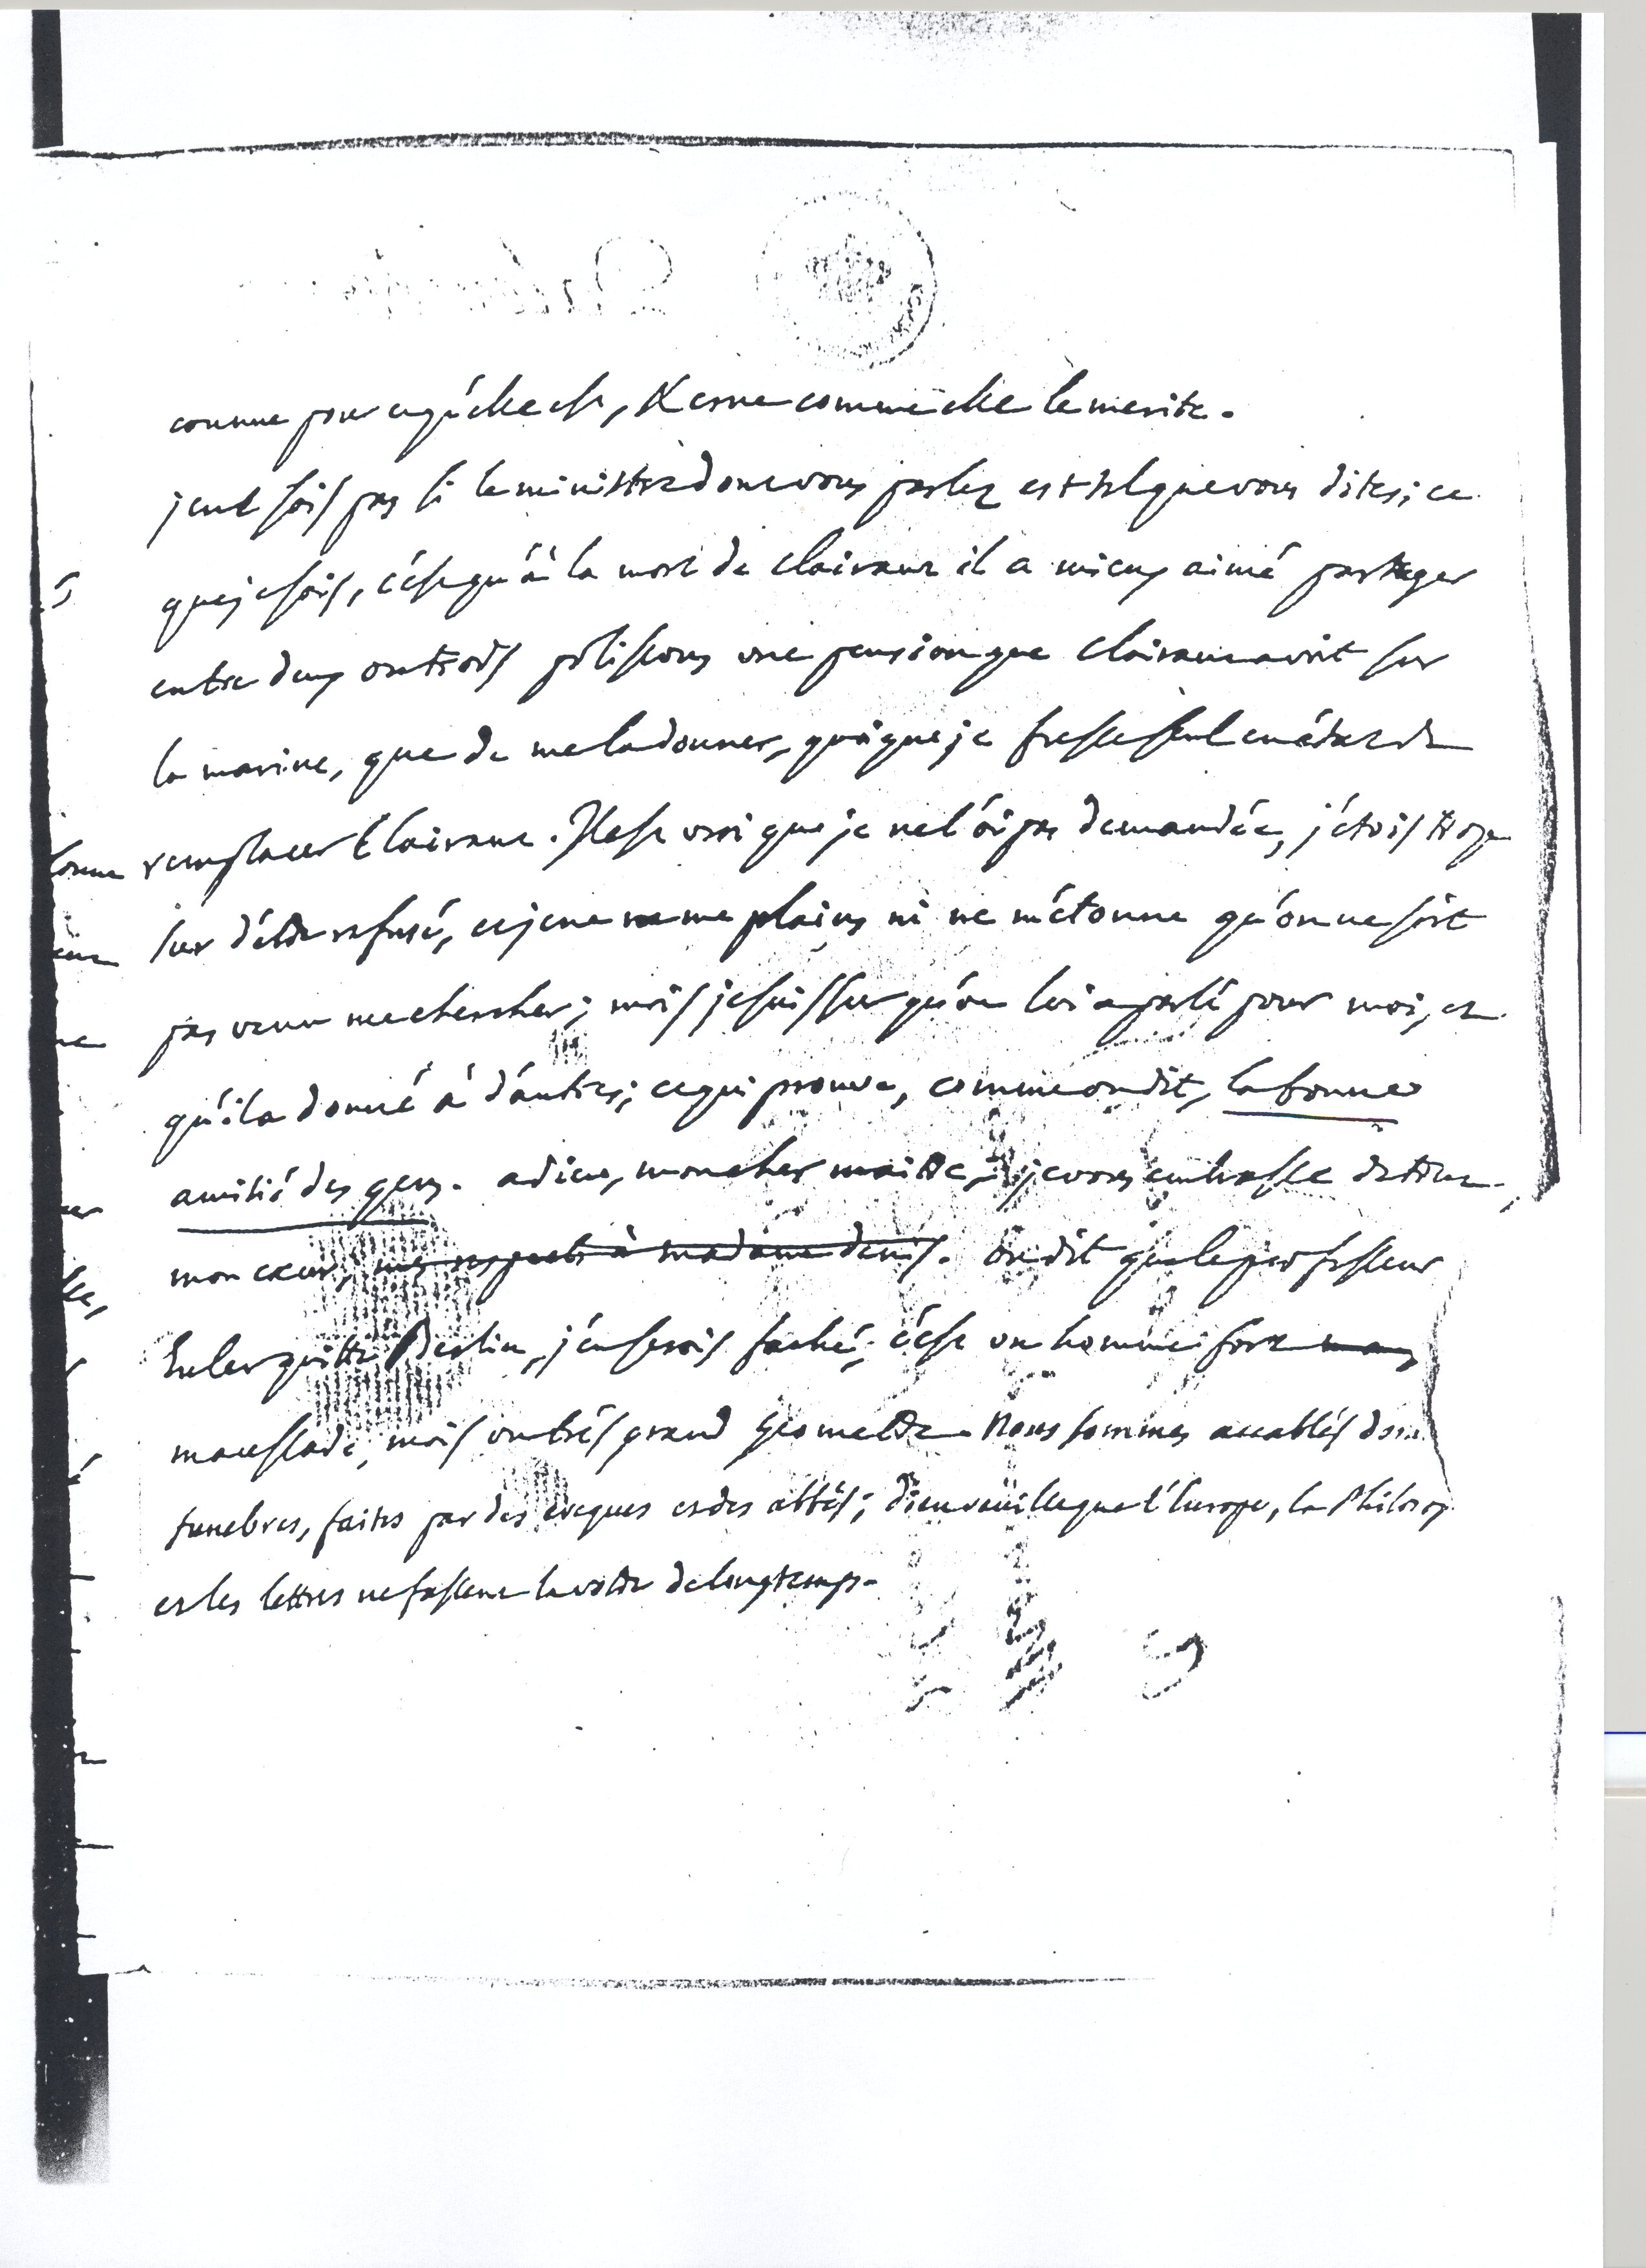 connue pour ce qu'elle est, & crue comme elle le merite.
je ne sais pas si le ministre dont vous parlez est tel que vous dites; ce
que je sais, c'est qu'à la mort de clairaut il a mieux aimé partager
entre deux ou trois polissons une pension que clairaut avoit sur
la marine, que de me la donner, quoique je fusse seul en état de
remplacer Clairaut. Il est vrai que je ne l'ai pas demandée, j'étois trop
sur d'être refusé, et je ne me plains ni ne m'étonne qu'on ne soit
pas venu me chercher; mais je suis sur qu'on lui a parlé pour moi, et
qu'il a donné à d'autres; ce qui prouve, comme on dit, la bonne
amitié des gens. adieu, mon cher maitre, je vous embrasse de tout
mon cœur, mes respects à madame denis. on dit que le professeur
Euler quitte Berlin, j'en serois faché; c'est un homme fort mau
maussade, mais un très grand géometre. Nous sommes accablés d'orai
funebres, faites par des eveques et des abbés; dieu veuille que l'Europe, la Philosop
et les lettres ne fassent la votre de longtemps.